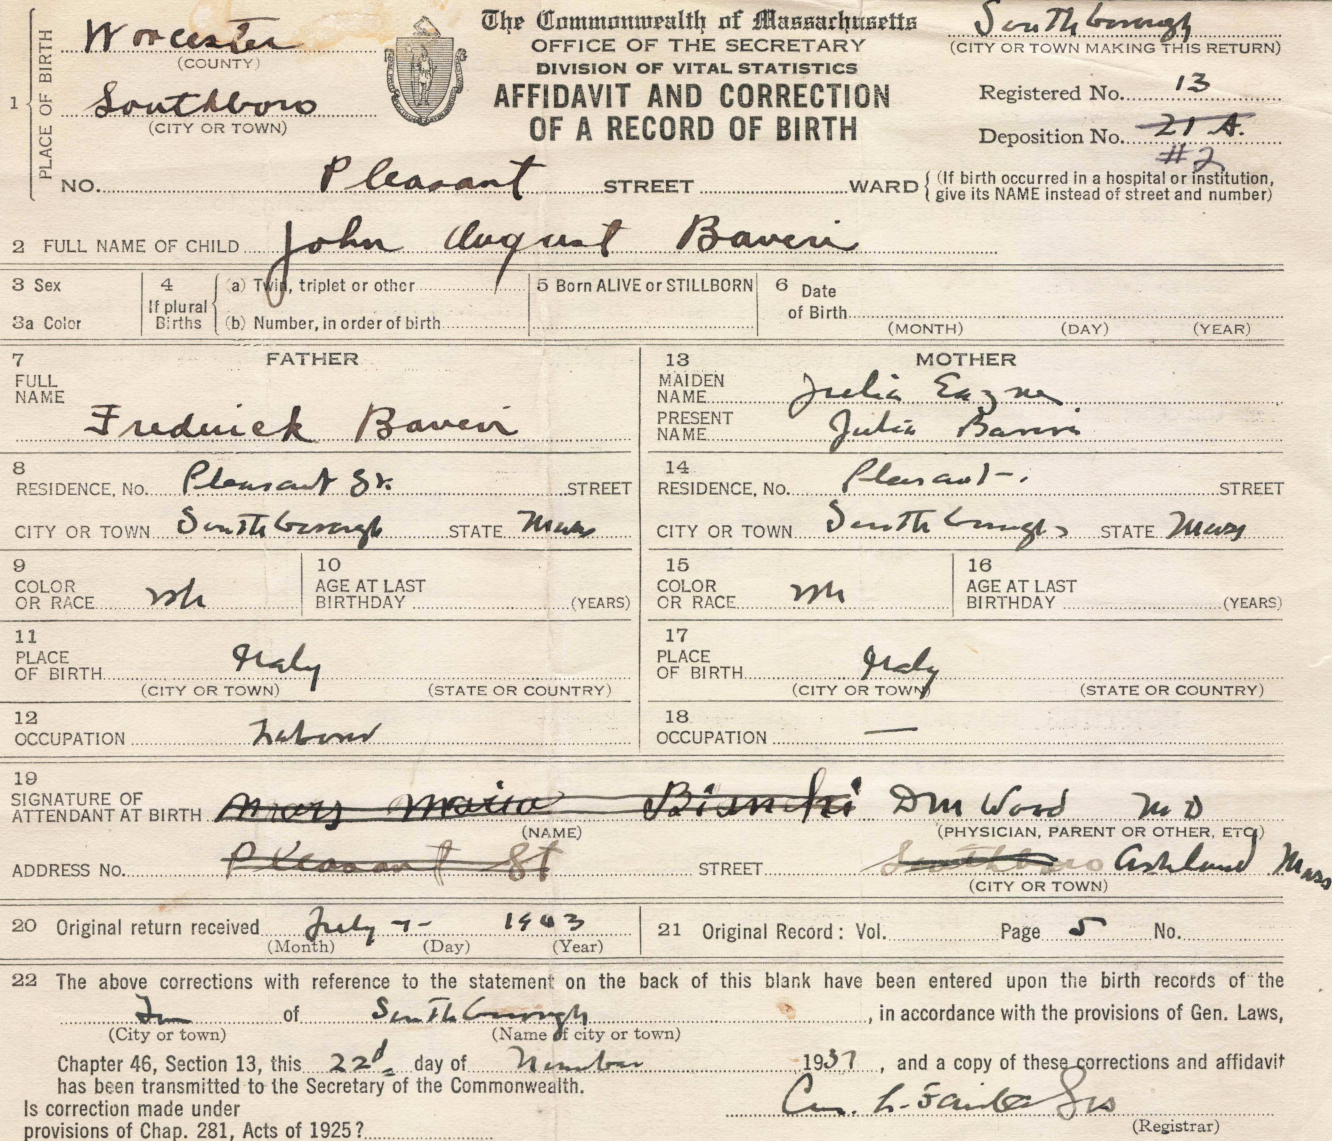 The Commonwealth of Massachusetts
OFFICE OF THE SECRETARY
DIVISION OF VITAL STATISTICS
AFFIDAVIT AND CORRECTION
OF A RECORD OF BIRTH
1 PLACE OF BIRTH
Worcester
(COUNTY)
Southboro
(CITY OR TOWN)
Southborough
(CITY OR TOWN MAKING THIS RETURN)
Registered No. 13
Deposition No. 21 A.
#2
NO. Pleasant STREET WARD (If birth occurred in a hospital or institution, give its NAME instead of street and number)
2 FULL NAME OF CHILD John August Baveri
3 Sex
3a Color
4 If plural Births
(a) Twin, triplet or other
(b) Number, in order of birth
5 Born ALIVE or STILLBORN
6 Date of Birth
(MONTH) (DAY) (YEAR)
7 FATHER
FULL NAME
Frederick Baveri
8
RESIDENCE, No. Pleasant St. STREET
CITY OR TOWN Southborough STATE Mass
9 COLOR OR RACE wh
10 AGE AT LAST BIRTHDAY (YEARS)
11
PLACE OF BIRTH Italy
(CITY OR TOWN) (STATE OR COUNTRY)
12
OCCUPATION Laborer
13 MOTHER
MAIDEN NAME Julia
PRESENT NAME Julia Baveri
14
RESIDENCE, No. Pleasant STREET
CITY OR TOWN Southborough STATE Mass
15 COLOR OR RACE wh
16 AGE AT LAST BIRTHDAY (YEARS)
17
PLACE OF BIRTH Italy
(CITY OR TOWN) (STATE OR COUNTRY)
18
OCCUPATION —
19
SIGNATURE OF ATTENDANT AT BIRTH Mars Maria Bianchi DM Wood MD
(NAME) (PHYSICIAN, PARENT OR OTHER, ETC)
ADDRESS No. Pleasant St STREET Southboro Ashland Mass
(CITY OR TOWN)
20 Original return received July 7- 1903
(Month) (Day) (Year)
21 Original Record: Vol. Page 5 No.
22 The above corrections with reference to the statement on the back of this blank have been entered upon the birth records of the
Town of Southborough, in accordance with the provisions of Gen. Laws,
(City or town) (Name of city or town)
Chapter 46, Section 13, this 22d day of November 1937, and a copy of these corrections and affidavit
has been transmitted to the Secretary of the Commonwealth.
Is correction made under
provisions of Chap. 281, Acts of 1925?
(Registrar)